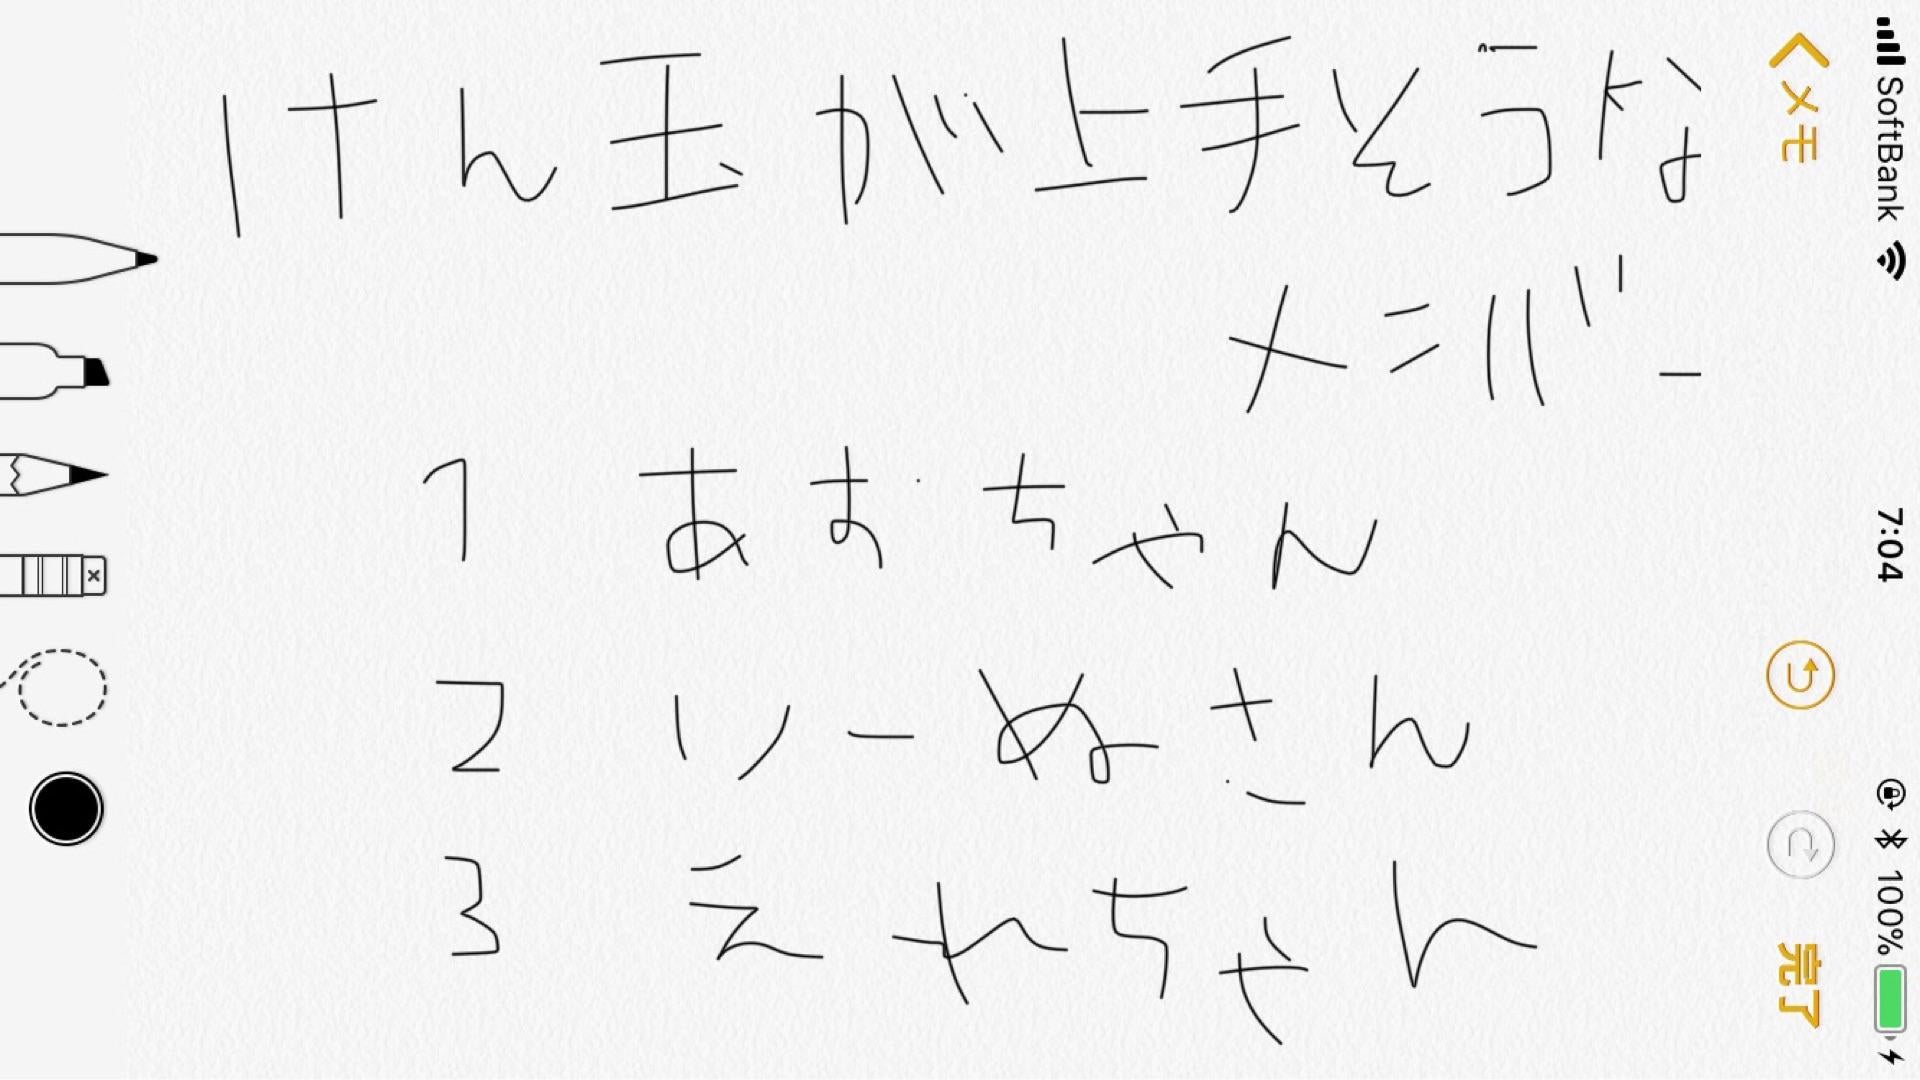 けん玉が上手そうな
メンバー
1 あおちゃん
2 りーぬさん
3 えれちゃん
メモ
完了
SoftBank 7:04 100%